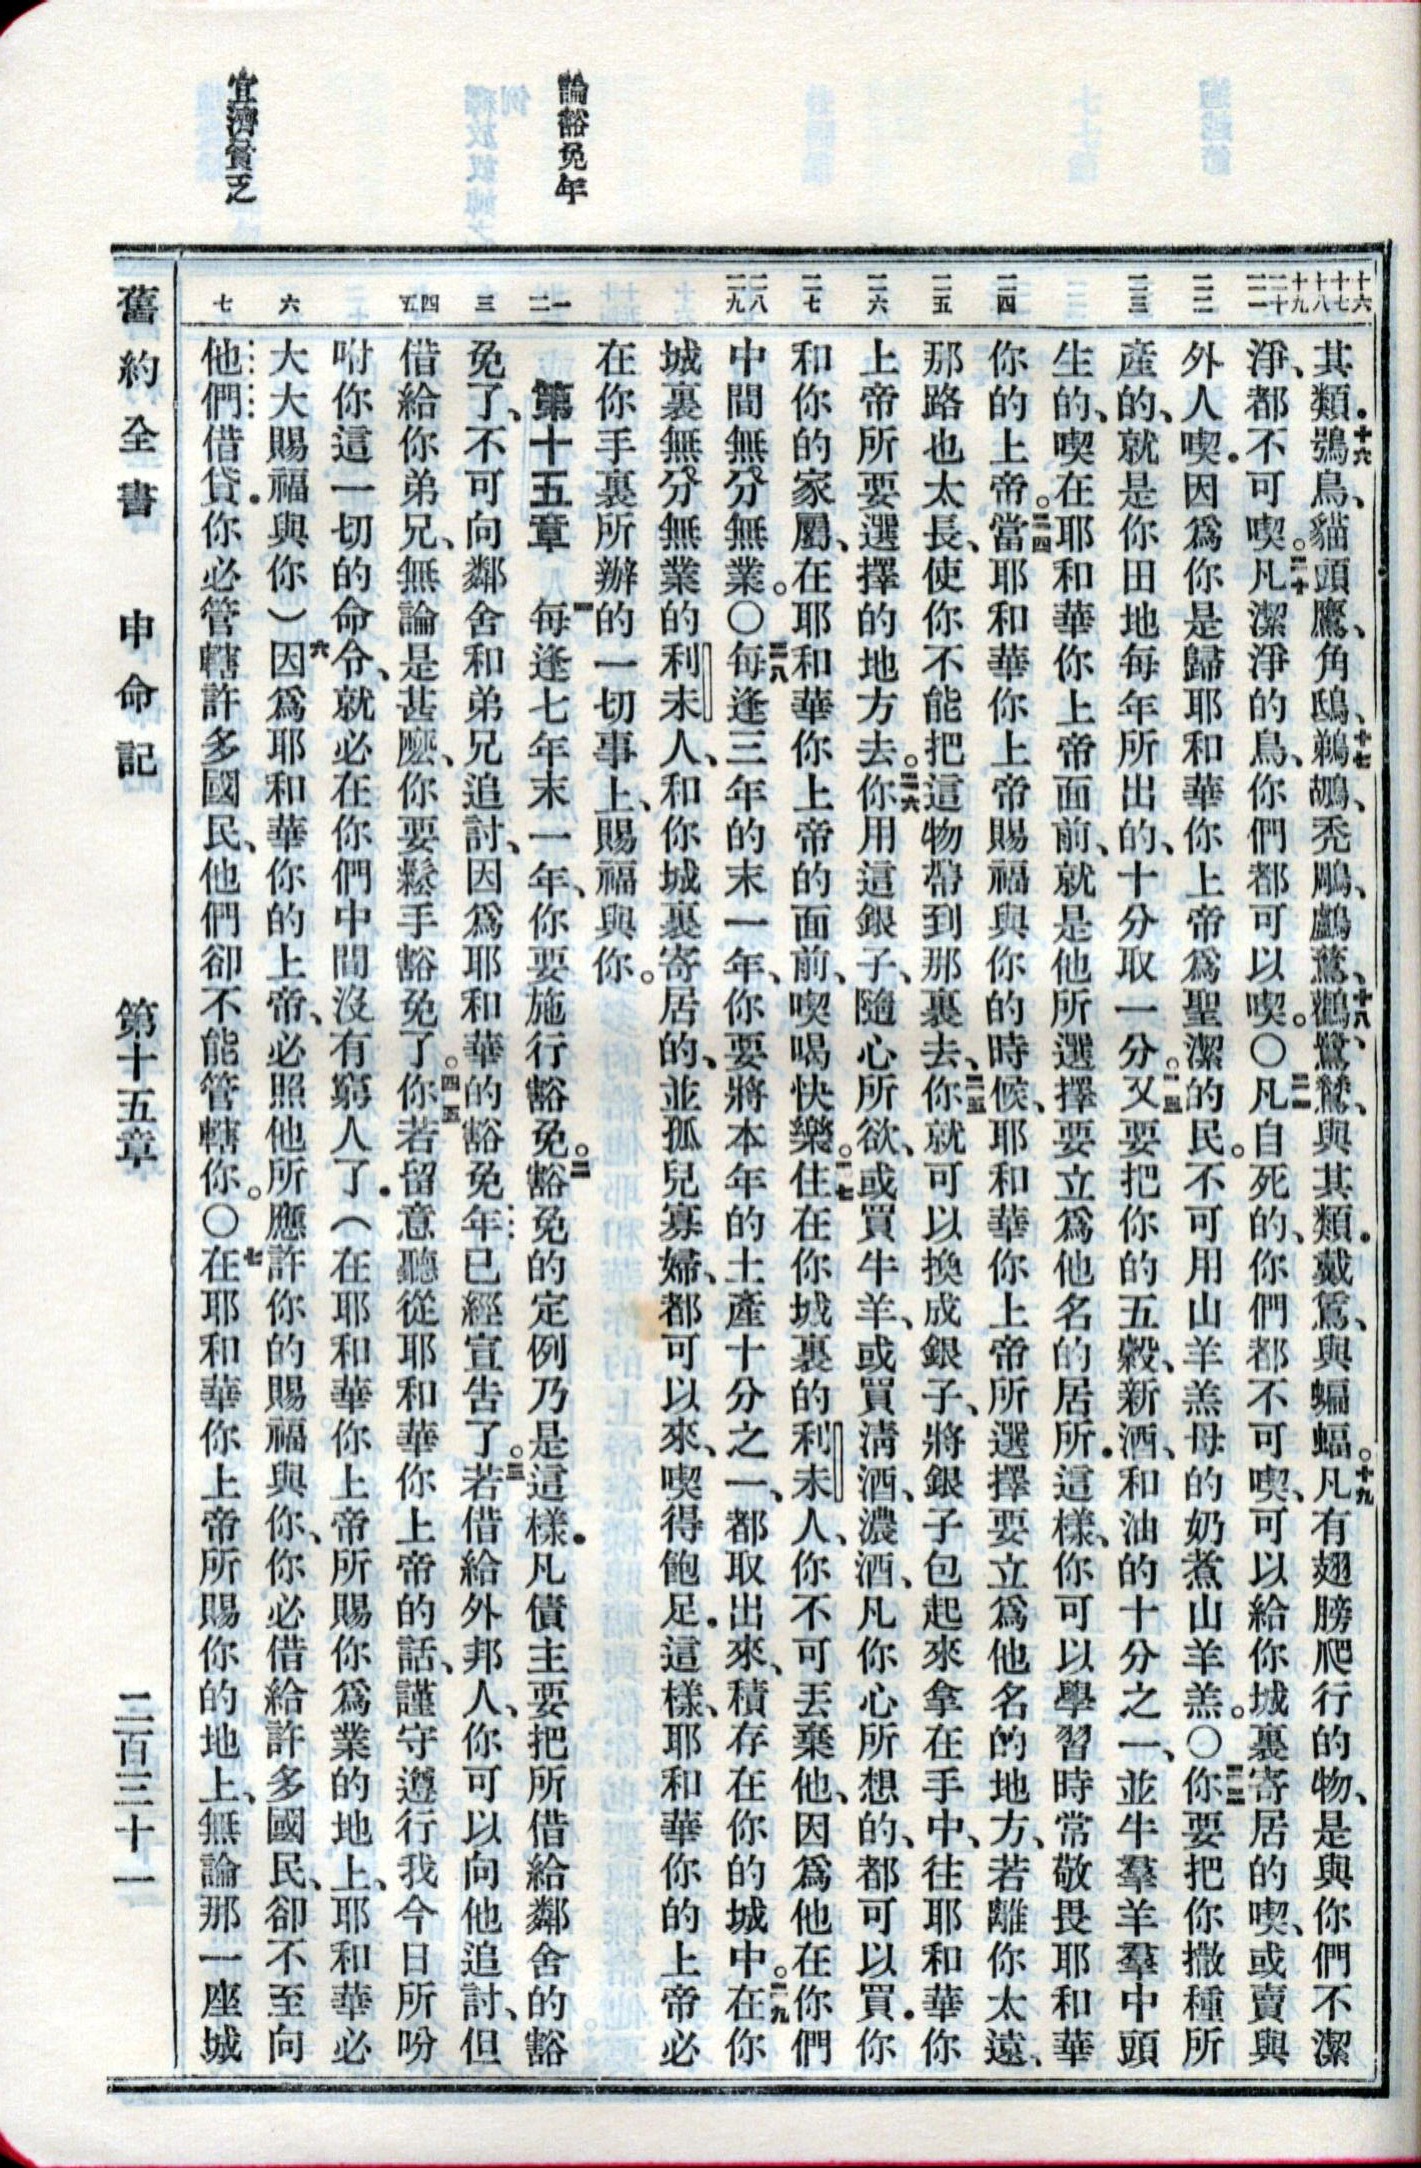 論豁免年
宜濟貧乏
十六 十七 十八 十九 二十 二一 二二 二三 二四 二五 二六 二七 二八 二九 一 二 三 四 五 六 七
其類．十六鴞鳥、貓頭鷹、角鴟、十七鵜鶘、禿鵰、鸕鶿、十八鸛、鷺鷥、與其類．戴鵀、與蝙蝠。十九凡有翅膀爬行的物、是與你們不潔
淨、都不可喫。二十凡潔淨的鳥、你們都可以喫。〇二一凡自死的、你們都不可喫、可以給你城裏寄居的喫、或賣與
外人喫．因爲你是歸耶和華你上帝爲聖潔的民。不可用山羊羔母的奶煮山羊羔。〇二二你要把你撒種所
產的、就是你田地每年所出的、十分取一分。二三又要把你的五穀、新酒、和油的十分之一、並牛羣羊羣中頭
生的、喫在耶和華你上帝面前、就是他所選擇要立爲他名的居所．這樣、你可以學習時常敬畏耶和華
你的上帝。二四當耶和華你上帝賜福與你的時候、耶和華你上帝所選擇要立爲他名的地方、若離你太遠、
那路也太長、使你不能把這物帶到那裏去、二五你就可以換成銀子、將銀子包起來拿在手中、往耶和華你
上帝所要選擇的地方去。二六你用這銀子、隨心所欲、或買牛羊、或買清酒、濃酒、凡你心所想的、都可以買．你
和你的家屬、在耶和華你上帝的面前、喫喝快樂。二七住在你城裏的利未人、你不可丟棄他、因爲他在你們
中間無分無業。〇二八每逢三年的末一年、你要將本年的土產十分之一、都取出來、積存在你的城中。二九在你
城裏無分無業的利未人、和你城裏寄居的、並孤兒寡婦、都可以來、喫得飽足．這樣、耶和華你的上帝必
在你手裏所辦的一切事上、賜福與你。
第十五章　一每逢七年末一年、你要施行豁免。二豁免的定例乃是這樣．凡債主要把所借給鄰舍的豁
免了、不可向鄰舍和弟兄追討、因爲耶和華的豁免年已經宣告了。三若借給外邦人、你可以向他追討、但
借給你弟兄、無論是甚麼、你要鬆手豁免了。四五你若留意聽從耶和華你上帝的話、謹守遵行我今日所吩
咐你這一切的命令、就必在你們中間沒有窮人了．（在耶和華你上帝所賜你爲業的地上、耶和華必
大大賜福與你）六因爲耶和華你的上帝、必照他所應許你的賜福與你、你必借給許多國民、卻不至向
他們借貸．你必管轄許多國民、他們卻不能管轄你。〇七在耶和華你上帝所賜你的地上、無論那一座城
舊約全書　申命記　第十五章　二百三十一